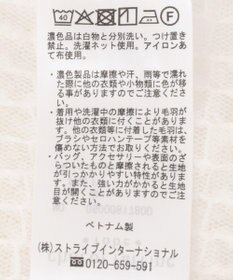 40 F
濃色品は白物と分別洗い。つけ置き
禁止。洗濯ネット使用。アイロンあ
て布使用。
・濃色製品は摩擦や汗、雨等で濡れ
た際に他の衣類や小物類に色が移
る事がありますのでご注意くださ
い。
・着用や洗濯中の摩擦により毛羽が
抜け他の衣類に付くことがありま
す。他の衣類等に付着した毛羽は、
ブラシやセロハンテープ等で素材を
傷めない方法でお取りください。
・バッグ、アクセサリーや表面のざ
らついたものと摩擦されると生地
が引っかかりやすい特性がありま
す。また、強い力がかかると生地
目が開くことがありますのでご注
意ください。
ベトナム製
(株)ストライプインターナショナル
0120-659-591